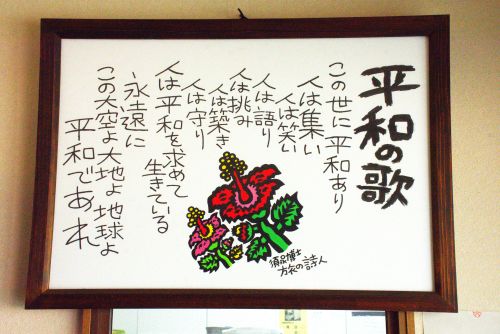 平和の歌
この世に平和あり
人は集い
人は笑い
人は語り
人は挑み
人は築き
人は守り
人は平和を求めて
生きている
永遠に
この大空よ大地よ地球よ
平和であれ
須永博士
旅の詩人